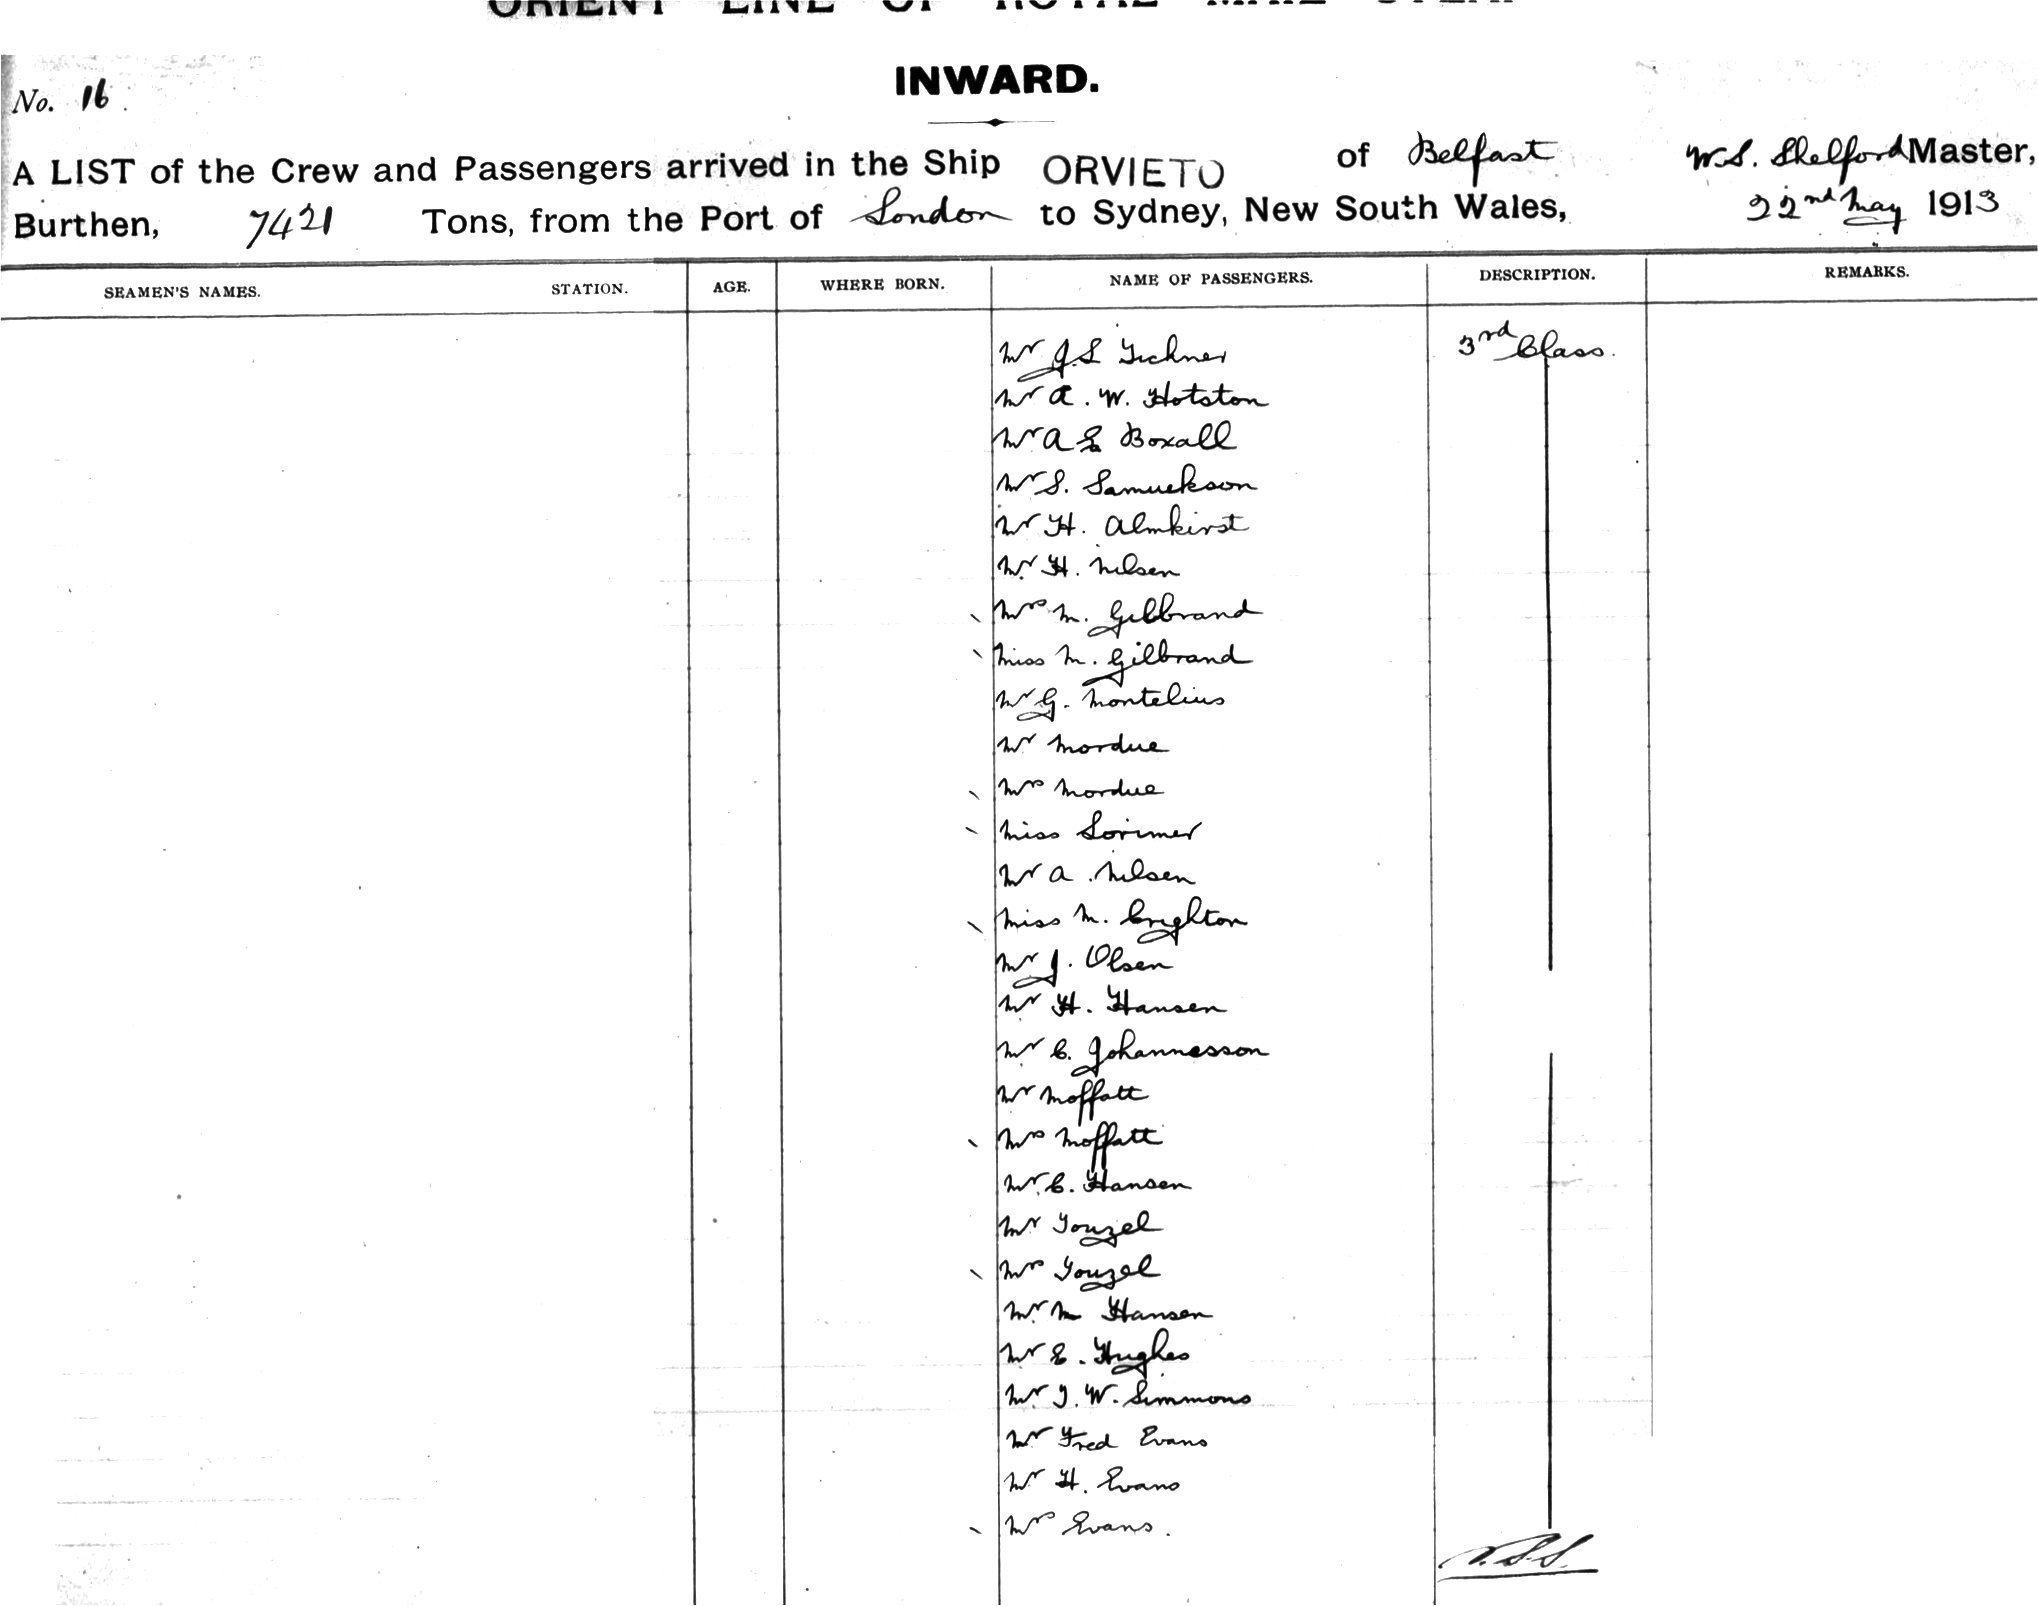 ORIENT LINE OF ROYAL MAIL STEAM
INWARD.
No. 16
A LIST of the Crew and Passengers arrived in the Ship ORVIETO of Belfast W.S. Shelford Master,
Burthen, 7421 Tons, from the Port of London to Sydney, New South Wales, 22nd May 1913
SEAMEN'S NAMES. STATION. AGE. WHERE BORN. NAME OF PASSENGERS. DESCRIPTION. REMARKS.
Mr J.S Tichner 3rd Class.
Mr A. W. Hotston
Mr A E Boxall
Mr S. Samuelson
Mr H. Almkirst
Mr H. Nilsen
Mrs M. Gilbrand
Miss M. Gilbrand
Mr G. Montelius
Mr Mordue
Mrs Mordue
Miss Lorimer
Mr A. Nilsen
Miss M. Crighton
Mr J. Olsen
Mr H. Hansen
Mr C. Johannesson
Mr Moffatt
Mrs Moffatt
Mr C. Hansen
Mr Touzel
Mrs Touzel
Mr M Hansen
Mr E. Hughes
Mr J. W. Simmons
Mr Fred Evans
Mr H. Evans
Mrs Evans.